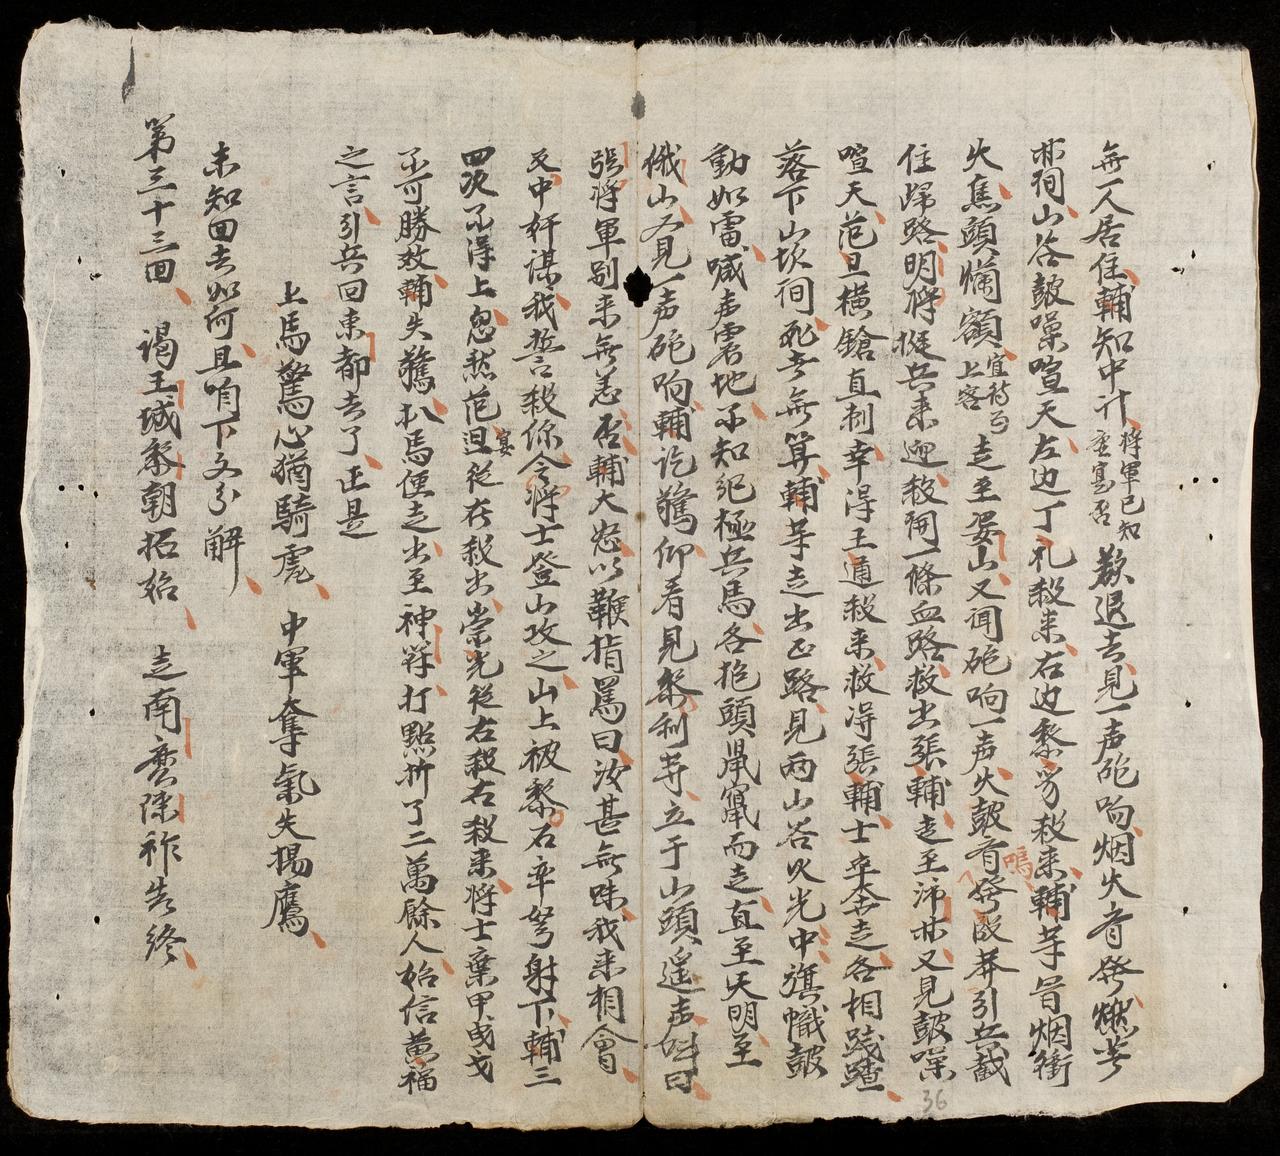 無一人居住輔知中计將軍已知虛寔否欲退去見一声砲响烟火齐發燃芳
林祠山谷皷噪喧天左边丁礼殺來右边黎豸殺來輔等冒烟衝
火焦頭爛額宜待为上客走至晏山又闻砲响一声火皷齐鳴發段莽引兵截
住帰路明將挺兵來迎殺開一條血路救出張輔走至沛林又見皷噪
喧天范旦横鎗直刺幸得王通殺來救得張輔士卒奔走各相踐蹅
落下山坎祠死者無算輔等走出正路見两山谷火光中旗幟皷
動如雷喊声震地不知紀極兵馬各抱頭鼠竄而走直至天明至
俄山又見一声砲响輔訖驚仰看見黎利等立于山頭遥声呼曰
張將軍别來無恙否輔大怒以鞭指罵曰汝甚無味我來相會
反中奸谋我誓殺你令將士登山攻之山上被黎石卒弩射下輔三
四次不得上忽然范旦宴從左殺出崇光從右殺右殺來將士棄甲曳戈
不可勝数輔失驚扒馬便走出至神符打點折了二萬餘人始信黄福
之言引兵回東都去了正是
上馬驚心猶騎虎　中軍奪氣失揚鷹
未知回去如何且咱下文分解
第三十三回　謁王城黎朝拓始　走南寮陳祚告終
36